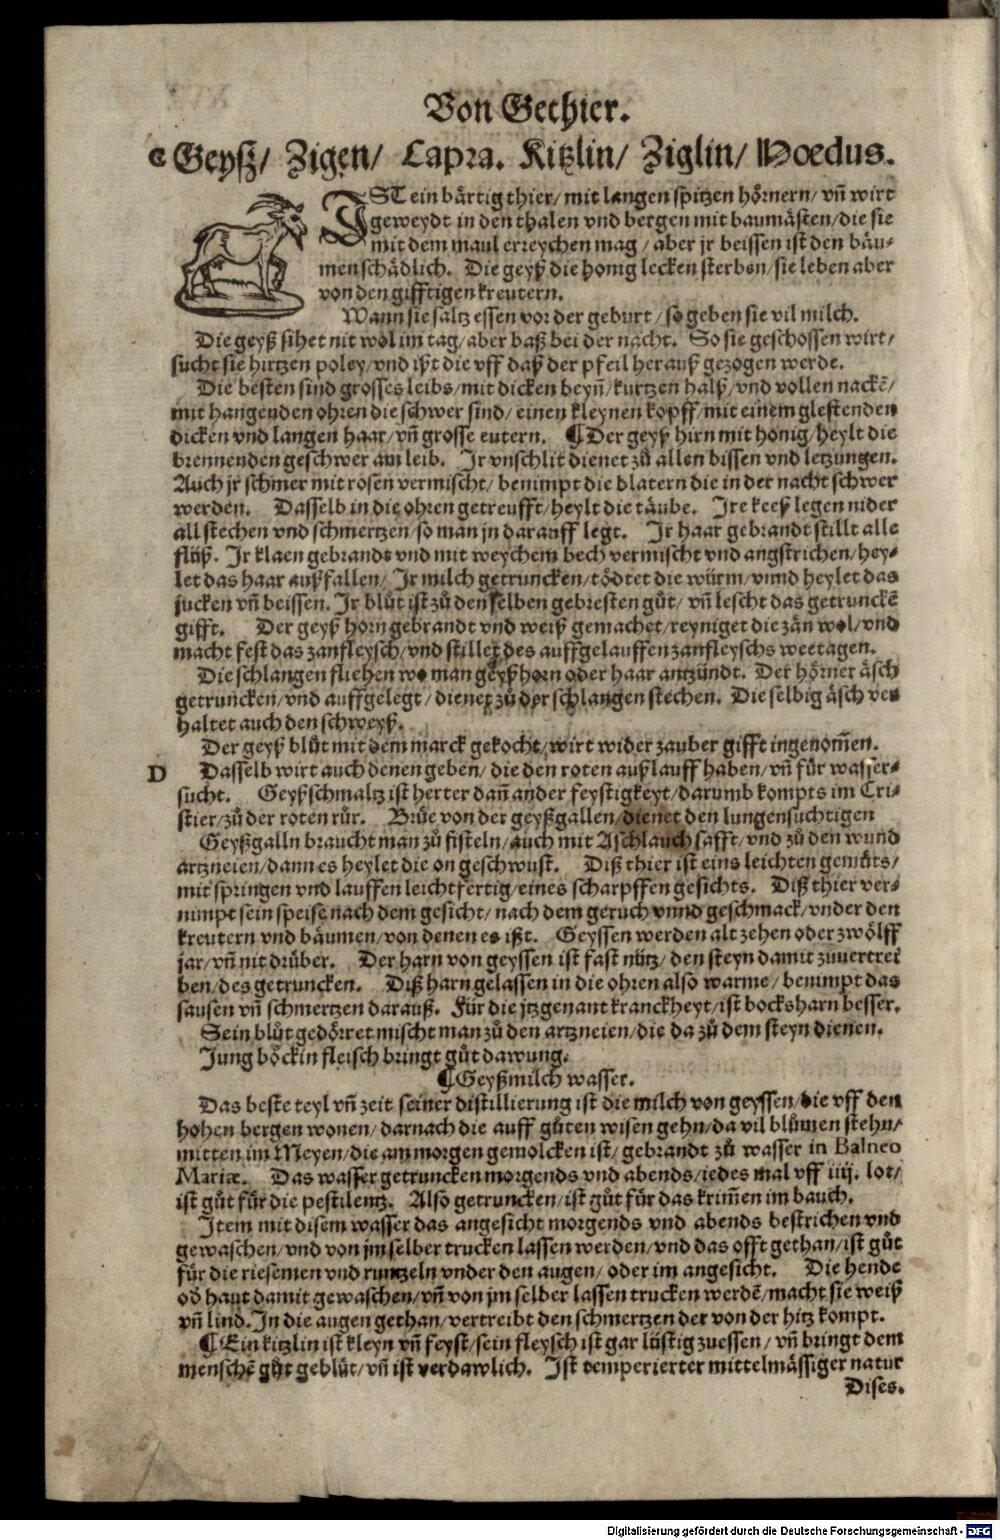 Von Gethier.
C Geysz/ Zigen/ Capra. Kitzlin/ Ziglin/ Hœdus.
IST ein bärtig thier/ mit langen spitzen hörnern/ vñ wirt
geweydt in den thalen vnd bergen mit baumästen/ die sie
mit dem maul erreychen mag / aber jr beissen ist den bäu-
men schädlich. Die geyß die honig lecken sterben/ sie leben aber
von den gifftigen kreutern.
Wann sie saltz essen vor der geburt / so geben sie vil milch.
Die geyß sihet nit wol im tag/ aber baß bei der nacht. So sie geschossen wirt/
sucht sie hirtzen poley/ vnd ißt die vff daß der pfeil herauß gezogen werde.
Die besten sind grosses leibs/ mit dicken beyñ/ kurtzen halß/ vnd vollen nackẽ/
mit hangenden ohren die schwer sind/ einen kleynen kopff/ mit einem glestenden
dicken vnd langen haar/ vñ grosse eutern. ¶ Der geyß hirn mit honig/ heylt die
brennenden geschwer am leib. Jr vnschlit dienet zů allen bissen vnd letzungen.
Auch jr schmer mit rosen vermischt/ benimpt die blatern die in der nacht schwer
werden. Dasselb in die ohren getreufft/ heylt die täube. Jre keeß legen nider
all stechen vnd schmertzen/ so man jn darauff legt. Jr haar gebrandt stillt alle
flüß. Jr klaen gebrandt vnd mit weychem bech vermischt vnd angstrichen/ hey-
let das haar außfallen/ Jr milch getruncken/ tödtet die würm/ vnnd heylet das
jucken vñ beissen. Jr blůt ist zů den selben gebresten gůt/ vñ lescht das getrunckẽ
gifft. Der geyß horn gebrandt vnd weiß gemachet/ reyniget die zän wol/ vnd
macht fest das zanfleysch/ vnd stillet des auffgelauffen zanfleyschs weetagen.
Die schlangen fliehen wo man geyßhorn oder haar antzündt. Der hörner äsch
getruncken/ vnd auffgelegt / dienet zů der schlangen stechen. Die selbig äsch ver
haltet auch den schweyß.
Der geyß blůt mit dem marck gekocht/ wirt wider zauber gifft ingenom̃en.
D Dasselb wirt auch denen geben/ die den roten außlauff haben/ vñ für wasser-
sucht. Geyßschmaltz ist herter dañ ander feystigkeyt/ darumb kompts im Cri-
stier/ zů der roten růr. Brüe von der geyßgallen/ dienet den lungensuchtigen
Geyßgalln braucht man zů fisteln/ auch mit Aschlauch safft/ vnd zů den wund
artzneien/ dann es heylet die on geschwust. Diß thier ist eins leichten gemüts/
mit springen vnd lauffen leichtfertig/ eines scharpffen gesichts. Diß thier ver-
nimpt sein speise nach dem gesicht/ nach dem geruch vnnd geschmack/ vnder den
kreutern vnd bäumen/ von denen es ißt. Geyssen werden alt zehen oder zwölff
jar/ vñ nit drüber. Der harn von geyssen ist fast nütz/ den steyn damit zůuertrei
ben/ des getruncken. Diß harn gelassen in die ohren also warme/ benimpt das
sausen vñ schmertzen darauß. Für die jtzgenant kranckheyt/ ist bocksharn besser.
Sein blůt gedörret mischt man zů den artzneien/ die da zů dem steyn dienen.
Jung böckin fleisch bringt gůt dawung.
¶ Geyßmilch wasser.
Das beste teyl vñ zeit seiner distillierung ist die milch von geyssen/ die vff den
hohen bergen wonen/ darnach die auff gůten wisen gehn/ da vil blůmen stehn/
mitten im Meyen/ die am morgen gemolcken ist/ gebrandt zů wasser in Balneo
Mariæ. Das wasser getruncken morgends vnd abends/ iedes mal vff iiij. lot/
ist gůt für die pestilentz. Also getruncken/ ist gůt für das krim̃en im bauch.
Jtem mit disem wasser das angesicht morgends vnd abends bestrichen vnd
gewaschen/ vnd von jm selber trucken lassen werden/ vnd das offt gethan/ ist gůt
für die riesemen vnd runtzeln vnder den augen/ oder im angesicht. Die hende
ob haut damit gewaschen/ vñ von jm selber lassen trucken werdẽ/ macht sie weiß
vñ lind. Jn die augen gethan/ vertreibt den schmertzen der von der hitz kompt.
¶ Ein kitzlin ist kleyn vñ feyst/ sein fleysch ist gar lüstig zuessen / vñ bringt dem
menschẽ gůt geblüt/ vñ ist verdawlich. Jst temperierter mittelmässiger natur
Dises.
Digitalisierung gefördert durch die Deutsche Forschungsgemeinschaft - DFG